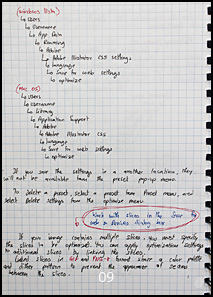 (Windows Vista)
↳ Users
↳ Username
↳ App Data
↳ Roaming
↳ Adobe
↳ Adobe Illustrator CS5 Settings
↳ language
↳ Save for web settings
↳ optimize
(Mac OS)
↳ Users
↳ username
↳ Library
↳ Application Support
↳ Adobe
↳ Adobe Illustrator CS5
↳ language
↳ Save for web settings
↳ optimize
If you save the settings in a another location, they
will not be available from the preset pop-up menu.
To delete a preset, select a preset from Preset menu, and
select Delete Settings from the optimize menu.
Work with slices in the Save for
web & devices dialog box
If your image contains multiple slices, you must specify
the slices to be optimized. You can apply optimization settings
to additional slices by linking the slices.
slices in GIF and PNG-8 format share a color palette
and dither pattern to prevent the appearance of seams
between the slices.
09